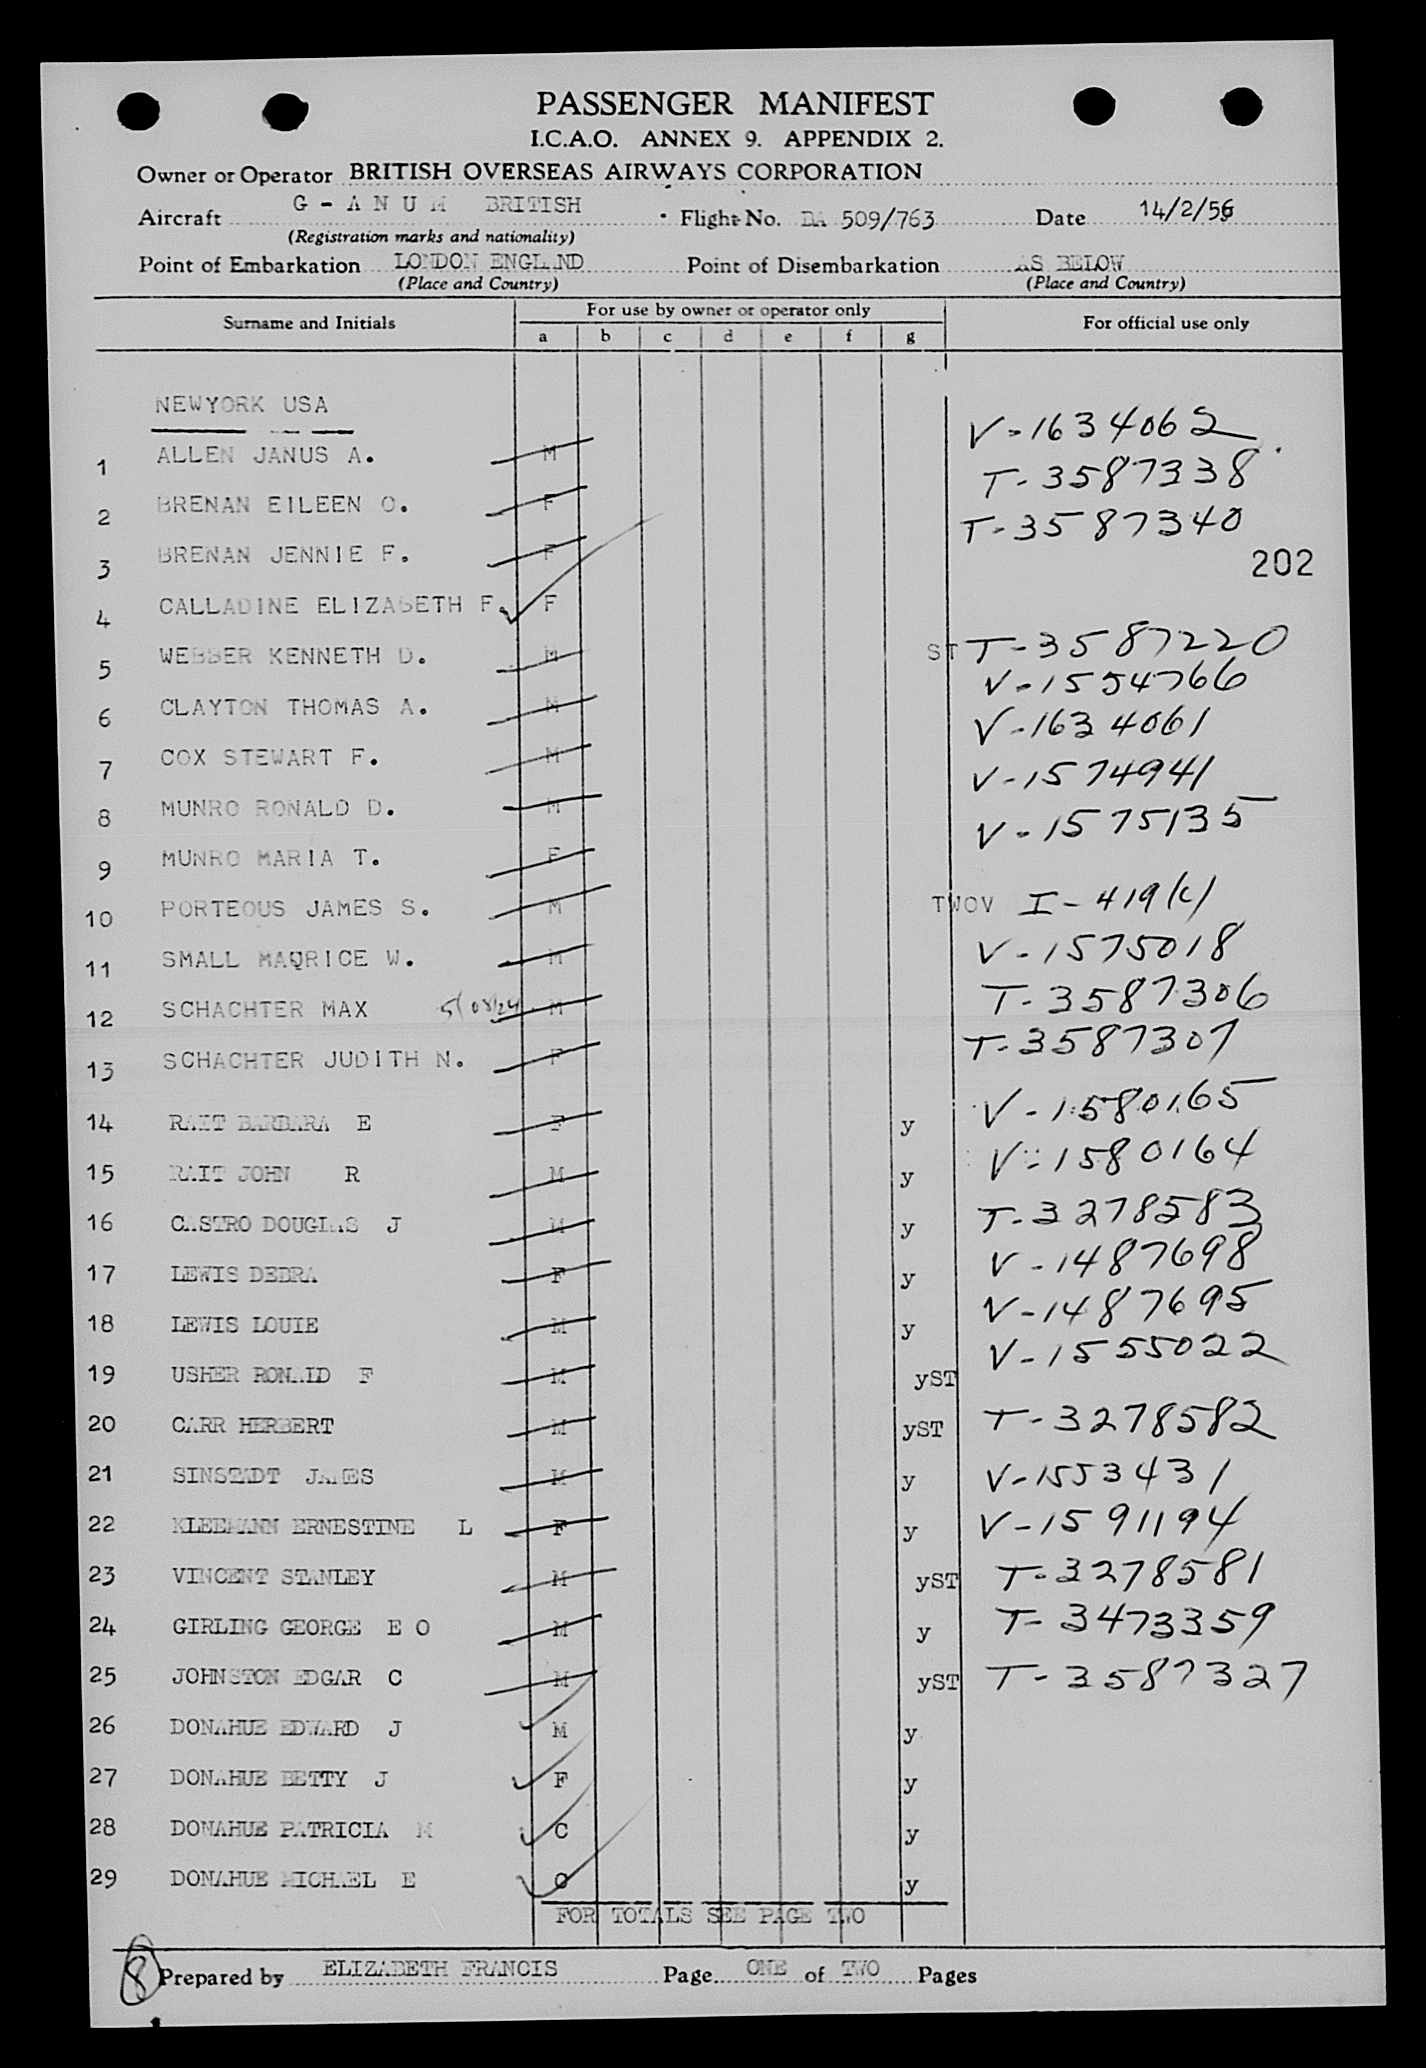 PASSENGER MANIFEST
I.C.A.O. ANNEX 9. APPENDIX 2.
Owner or Operator BRITISH OVERSEAS AIRWAYS CORPORATION
Aircraft G - A N U M BRITISH Flight No. BA 509/763 Date 14/2/56
(Registration marks and nationality)
Point of Embarkation LONDON ENGLAND Point of Disembarkation AS BELOW
(Place and Country) (Place and Country)
Surname and Initials For use by owner or operator only For official use only
a b c d e f g
NEWYORK USA
1 ALLEN JANUS A. M V-1634062
2 BRENAN EILEEN O. F T-3587338
3 BRENAN JENNIE F. F T-3587340
202
4 CALLADINE ELIZABETH F F
5 WEBBER KENNETH D. M ST T-3587220
6 CLAYTON THOMAS A. M V-1554766
7 COX STEWART F. M V-1634061
8 MUNRO RONALD D. M V-1574941
9 MUNRO MARIA T. F V-1575135
10 PORTEOUS JAMES S. M TWOV I-419(c)
11 SMALL MAQRICE W. M V-1575018
12 SCHACHTER MAX M T-3587306
13 SCHACHTER JUDITH N. F T-3587307
14 RAIT BARBARA E F y V-1580165
15 RAIT JOHN R M y V-1580164
16 CASTRO DOUGLAS J M y T-3278583
17 LEWIS DEBRA F y V-1487698
18 LEWIS LOUIE M y V-1487695
19 USHER RONALD F M yST V-1555022
20 CARR HERBERT M yST T-3278582
21 SINSTADT JAMES M y V-1553431
22 KLEEMANN ERNESTINE L F y V-1591194
23 VINCENT STANLEY M yST T-3278581
24 GIRLING GEORGE E O M y T-3473359
25 JOHNSTON EDGAR C M yST T-3587327
26 DONAHUE EDWARD J M y
27 DONAHUE BETTY J F y
28 DONAHUE PATRICIA M C y
29 DONAHUE MICHAEL E C y
FOR TOTALS SEE PAGE TWO
8 Prepared by ELIZABETH FRANCIS Page ONE of TWO Pages